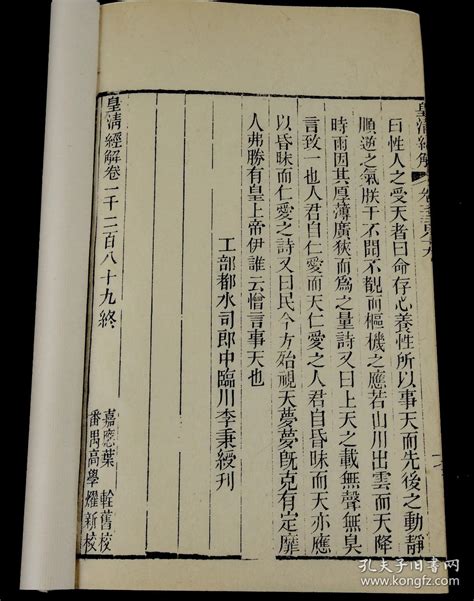 皇清經解
曰性人之受天者曰命存心養性所以事天而先後之動靜
順逆之氣朕于不聞不覩而樞機之應若山川出雲而天降
時雨因其厚薄廣狹而爲之量詩又曰上天之載無聲無臭
言致一也人君自仁愛而天仁愛之人君自昏昧而天亦應
以昏昧而仁愛之詩又曰民今方殆視天夢夢旣克有定靡
人弗勝有皇上帝伊誰云憎言事天也
工部都水司郎中臨川李秉綬刊
皇清經解卷一千二百八十九終
嘉應葉 舊校
番禺高學燿新校
孔夫子旧书网
www.kongfz.com